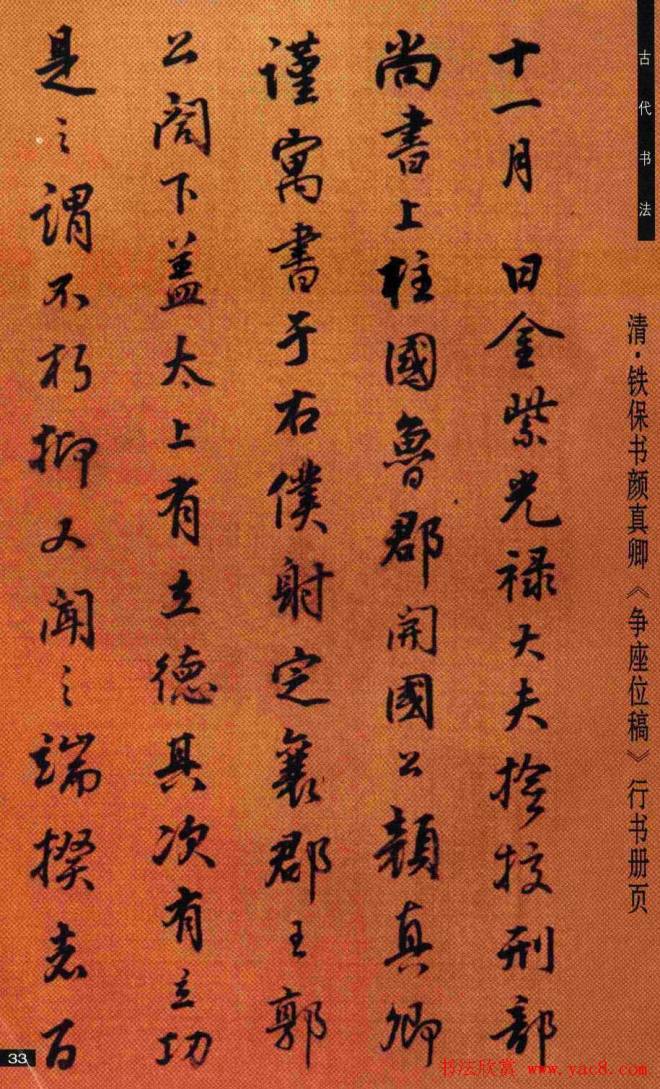 古代书法
清·铁保书颜真卿《争座位稿》行书册页
十一月 日金紫光禄大夫捡挍刑部
尚書上柱國魯郡開國公顔真卿
謹寓書于右僕射定襄郡王郭
公閤下盖太上有立德其次有立功
是之謂不朽抑又聞之端揆者百
33
书法欣赏 www.yac8.com